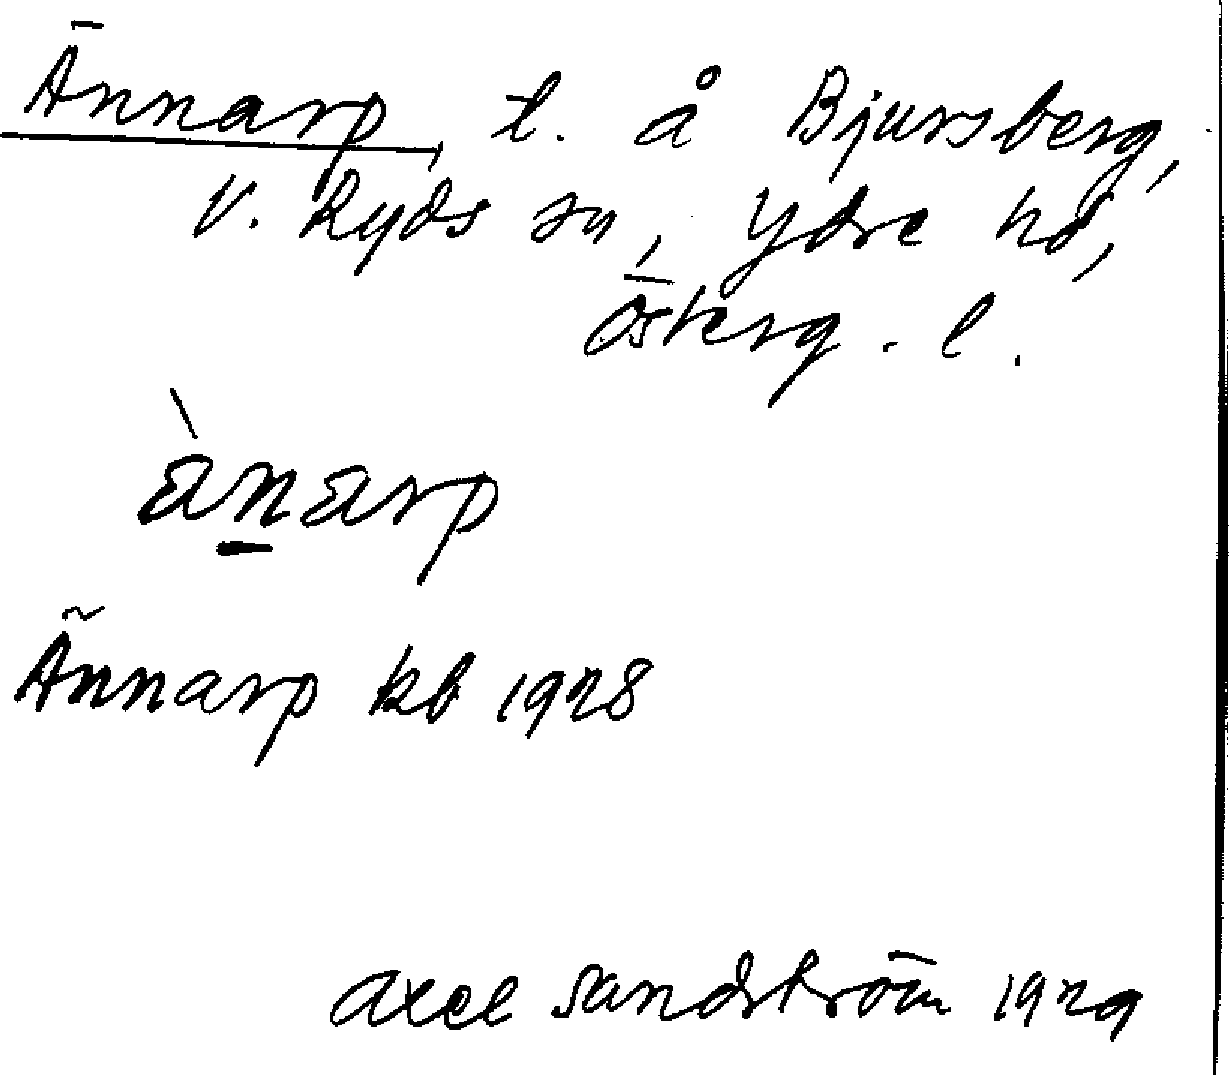 Ännarp, t. å Bjursberg,
V. Ryds sn, Ydre hd,
Österg. l.
ànarp
Ännarp kb 1928
Axel Sandström 1929